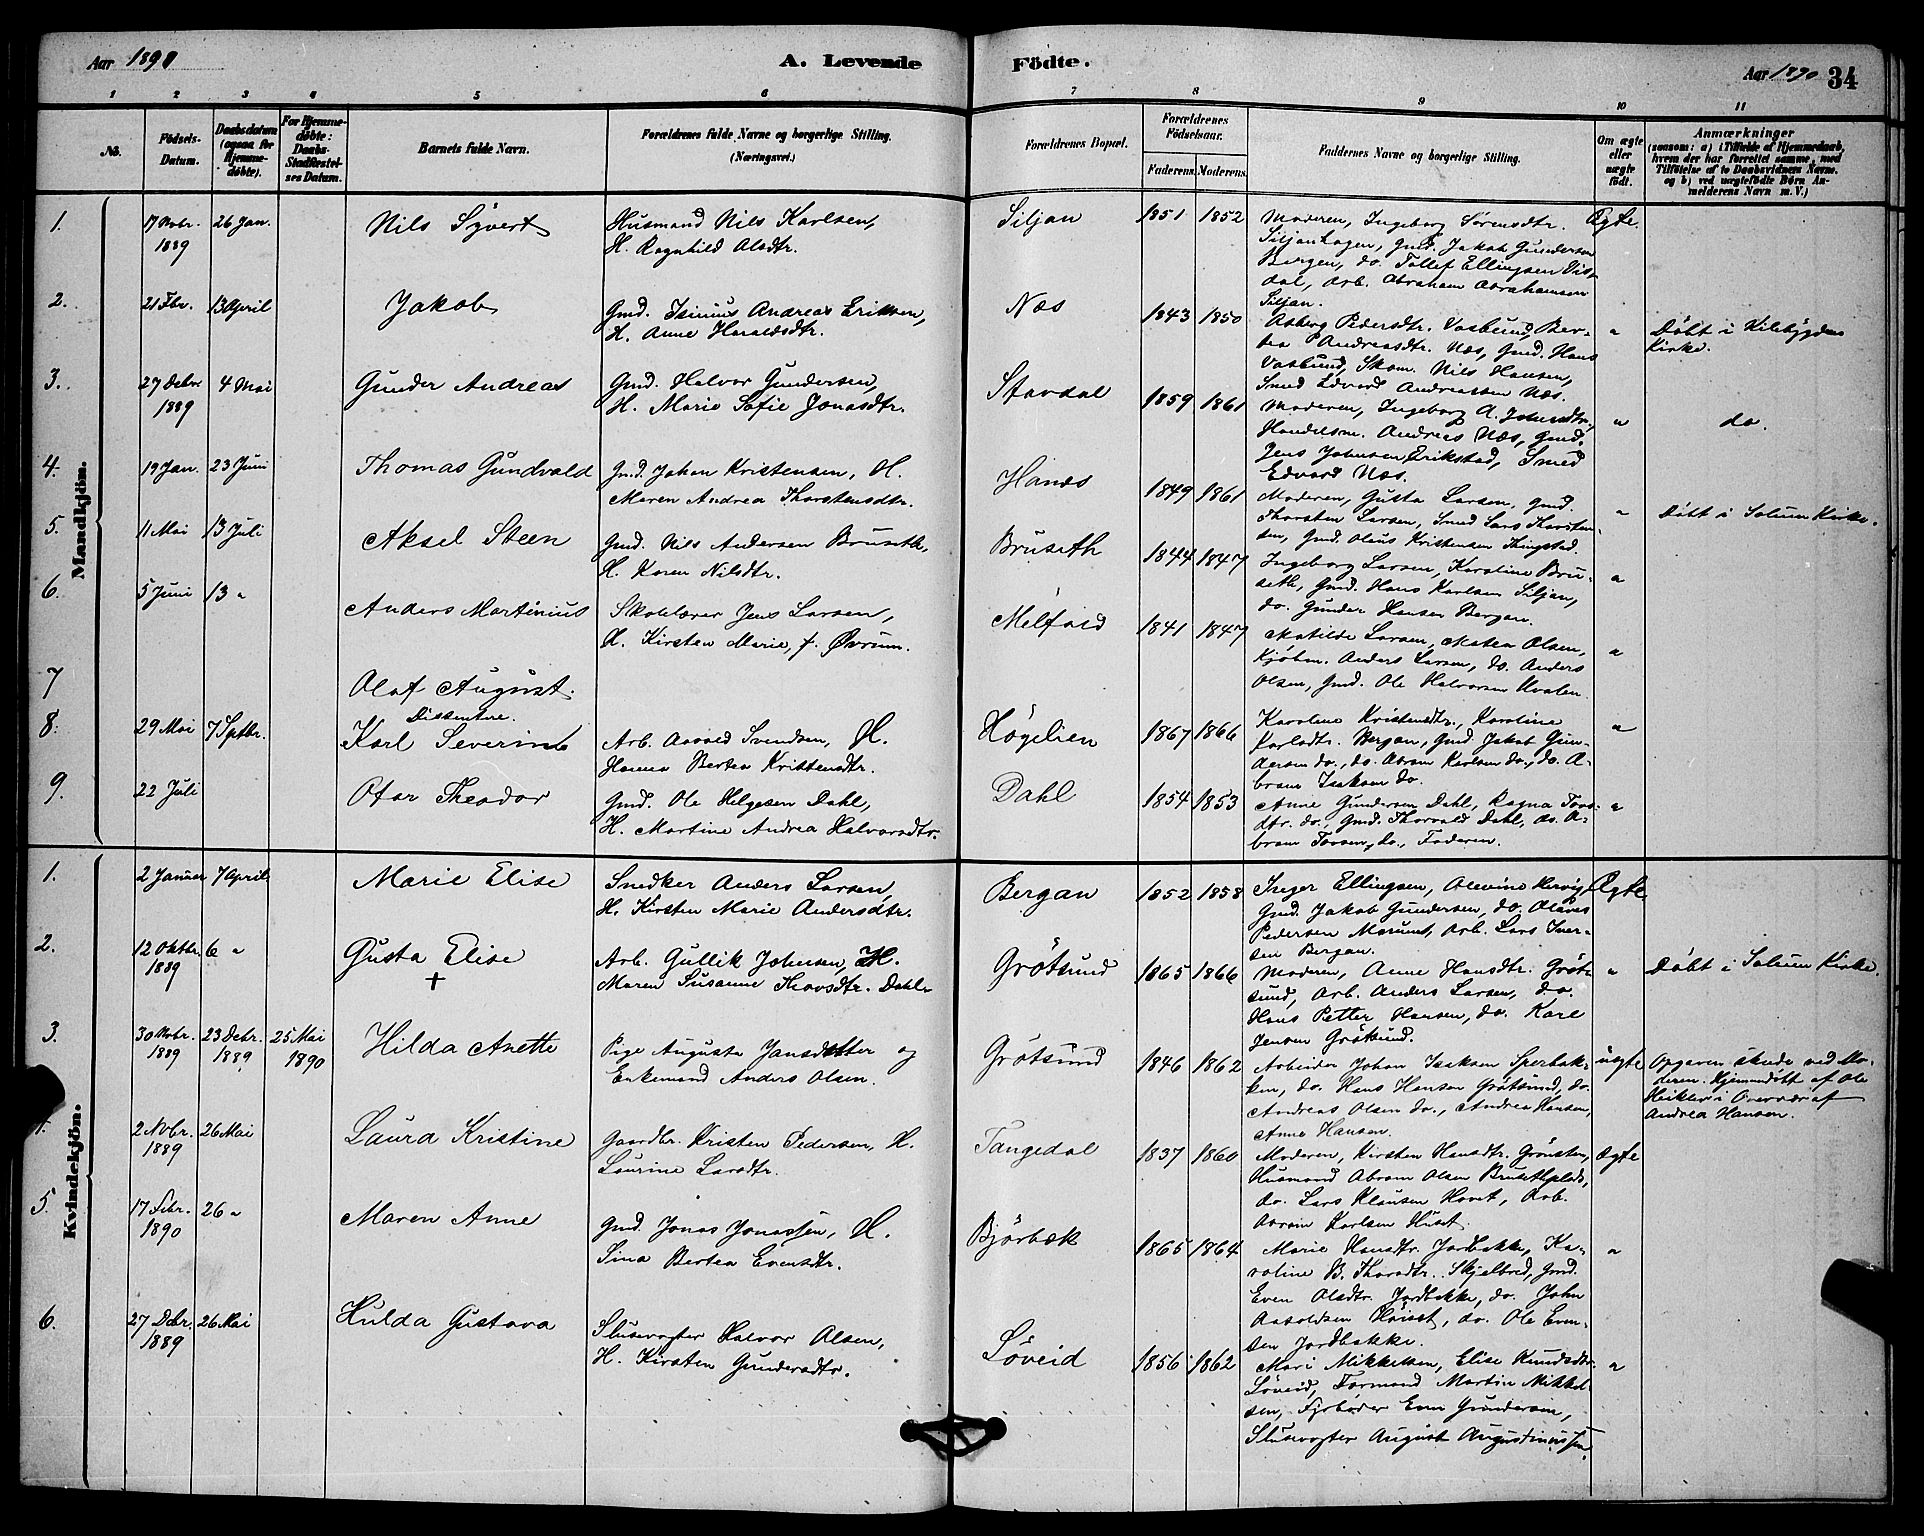 Aar 1890
A. Levende
Födte.
Aar 1890
34
1 2 3 4 5 6 7 8 9 10 11
No.
Födsels-Datum.
Daabsdatum (ogsaa for Hjemme-døbte).
For Hjemme-døbte: Daabs-Stadfæstel-ses Datum.
Barnets fulde Navn.
Forældrenes fulde Navne og borgerlige Stilling. (Næringsvei.)
Forældrenes Bopæl.
Forældrenes Födselsaar.
Faderens. Moderens.
Faddernes Navne og borgerlige Stilling.
Om ægte eller uægte født.
Anmærkninger
(saasom: a) i Tilfælde af Hjemmedaab, hvem der har forrettet samme, med Tilföielse af to Daabsvidners Navne, og b) ved uægtefödte Börn Anmelderens Navn m. V.)
Mandkjön.
1. 17 Novbr. 1889 26 Jan. Nils Syvert Husmand Nils Karlsen, H. Ragnhild Olsdtr. Siljan 1851 1852 Moderen, Ingeborg Sørensdtr. Siljanhagen, Gmd. Jakob Gundersen Bergan, do. Tollef Ellingsen, Arb. Abraham Abrahamsen Siljan. Ægte
2. 21 Fbr. 13 April Jakob Gmd. Isinius Andreas Eriksen, H. Anne Haraldsdtr. Næs 1843 1850 Asberg Pedersdtr. Vasbund, Bertea Andreasdtr. Næs, Gmd. Hans Vasbund, Skom. Nils Hansen, Smed Edvard Andreassen Næs. " Døbt i Kilebygdens Kirke.
3. 27 Debr 1889 4 Mai Gunder Andreas Gmd. Halvor Gundersen, H. Marie Sofie Jonasdtr. Stavdal 1859 1861 Moderen, Ingeborg A. Johnsdtr., Handelsm. Andreas Næs, Gmd. Jens Johnsen Erikstad, Smed Edvard Næs. " do.
4. 19 Jan. 23 Juni Thomas Gundvald Gmd. Johan Kristensen, H. Maren Andrea Thorstensdtr. Hanes 1849 1861 Moderen, Gusta Larsen, Gmd. Thorsten Larsen, Smed Lars Thorstensen, Gmd. Olaus Kristensen Thingstad. " Døbt i Solum Kirke.
5. 11 Mai 13 Juli Aksel Steen Gmd. Nils Andersen Bruseth, H. Karen Nilsdtr. Bruseth 1844 1847 Ingeborg Larsen, Karoline Bruseth, Gmd. Hans Karlsen Siljan, do. Gunder Hansen Bergan. "
6. 5 Juni 13 " Anders Martinius Skolelærer Jens Larsen, H. Kirsten Marie, f. Øvrum. Melfald 1841 1847 Matilde Larsen, Matea Olsen, Kjøbm. Anders Larsen, do. Anders Olsen, Gmd. Ole Halvorsen Hvalen. "
7 Olaf August. Dissentere.
8. 29 Mai 7 Septbr. Karl Severin Arb. Asvald Svendsen, H. Hanna Bertea Kristensdtr. Høgelien 1867 1866 Karoline Kristensdtr., Karoline Karlsdtr. Bergan, Gmd. Jakob Gundersen do., do. Abram Karlsen do., do. Abram Isaksen do. "
9. 22 Juli Otar Theodor Gmd. Ole Helgesen Dahl, H. Martine Andrea Halvorsdtr. Dahl 1854 1853 Anne Gundersen Dahl, Ragna Torsdtr. do., Gmd. Thorvald Dahl, do. Abram Torsen, do., Faderen. "
Kvindekjön.
1. 2 Januar 7 April Marie Elise Snedker Anders Larsen, H. Kirsten Marie Andersdtr. Bergan 1852 1858 Inger Ellingsen, Olevine Hervig, Gmd. Jakob Gundersen, do. Olaves Pedersen, Arb. Lars Iversen Bergan. Ægte
2. 12 Oktbr. 1889 6 " Gusta Elise + Arb. Gullik Johnsen, H. Maren Susanne Thovsdtr. Dahl Grøtsund 1865 1866 Moderen, Anne Hansdtr. Grøtsund, Arb. Anders Larsen, do. Hans Petter Hansen, do. Karl Jensen Grøtsund. " Døbt i Solum Kirke.
3. 30 Novbr. 1889 23 Debr. 1889 25 Mai 1890 Hilda Anette Pige Augusta Jansdatter og Enkemand Anders Olsen. Grøtsund 1846 1862 Arbeider Johan Isaksen Sperbakken, do. Hans Hansen Grøtsund, do. Andreas Olsen do., Andrea Hansen, Anne Hansen. uægte Opgaven skede ved Moderen. Hjemmedøbt af Ole i Overvær af Andrea Hansen.
4. 2 Nvbr. 1889 26 Mai Laura Kristine Gaardbr. Kristen Pedersen, H. Laurine Larsdtr. Tangedal 1837 1860 Moderen, Kirsten Hansdtr. Grønsten, Husmand Abram Olsen Brusethplads, do. Lars Klausen Hovet, Arb. Abram Karlsen Huset. ægte
5. 17 Febr. 1890 26 " Maren Anne Gmd. Jonas Jonassen, H. Sina Bertea Evensdtr. Bjørbæk 1865 1864 Marie Hansdtr. Jordbakke, Karoline B. Thorsdtr. Skjelbred, Gmd. Even Olsdtr. Jordbakke, do. John Aasoldsen Høiset, do. Ole Evensen Jordbakke. "
6. 27 Debr. 1889 26 Mai Hulda Gustava Slusevogter Halvor Olsen, H. Kirsten Gundersdtr. Løveid 1856 1862 Mari Mikkelsen, Elise Knudsdtr. Løveid, Formand Martin Mikkelsen, Fyrbøder Even Gundersen, Slusevogter August Augustinussen. "